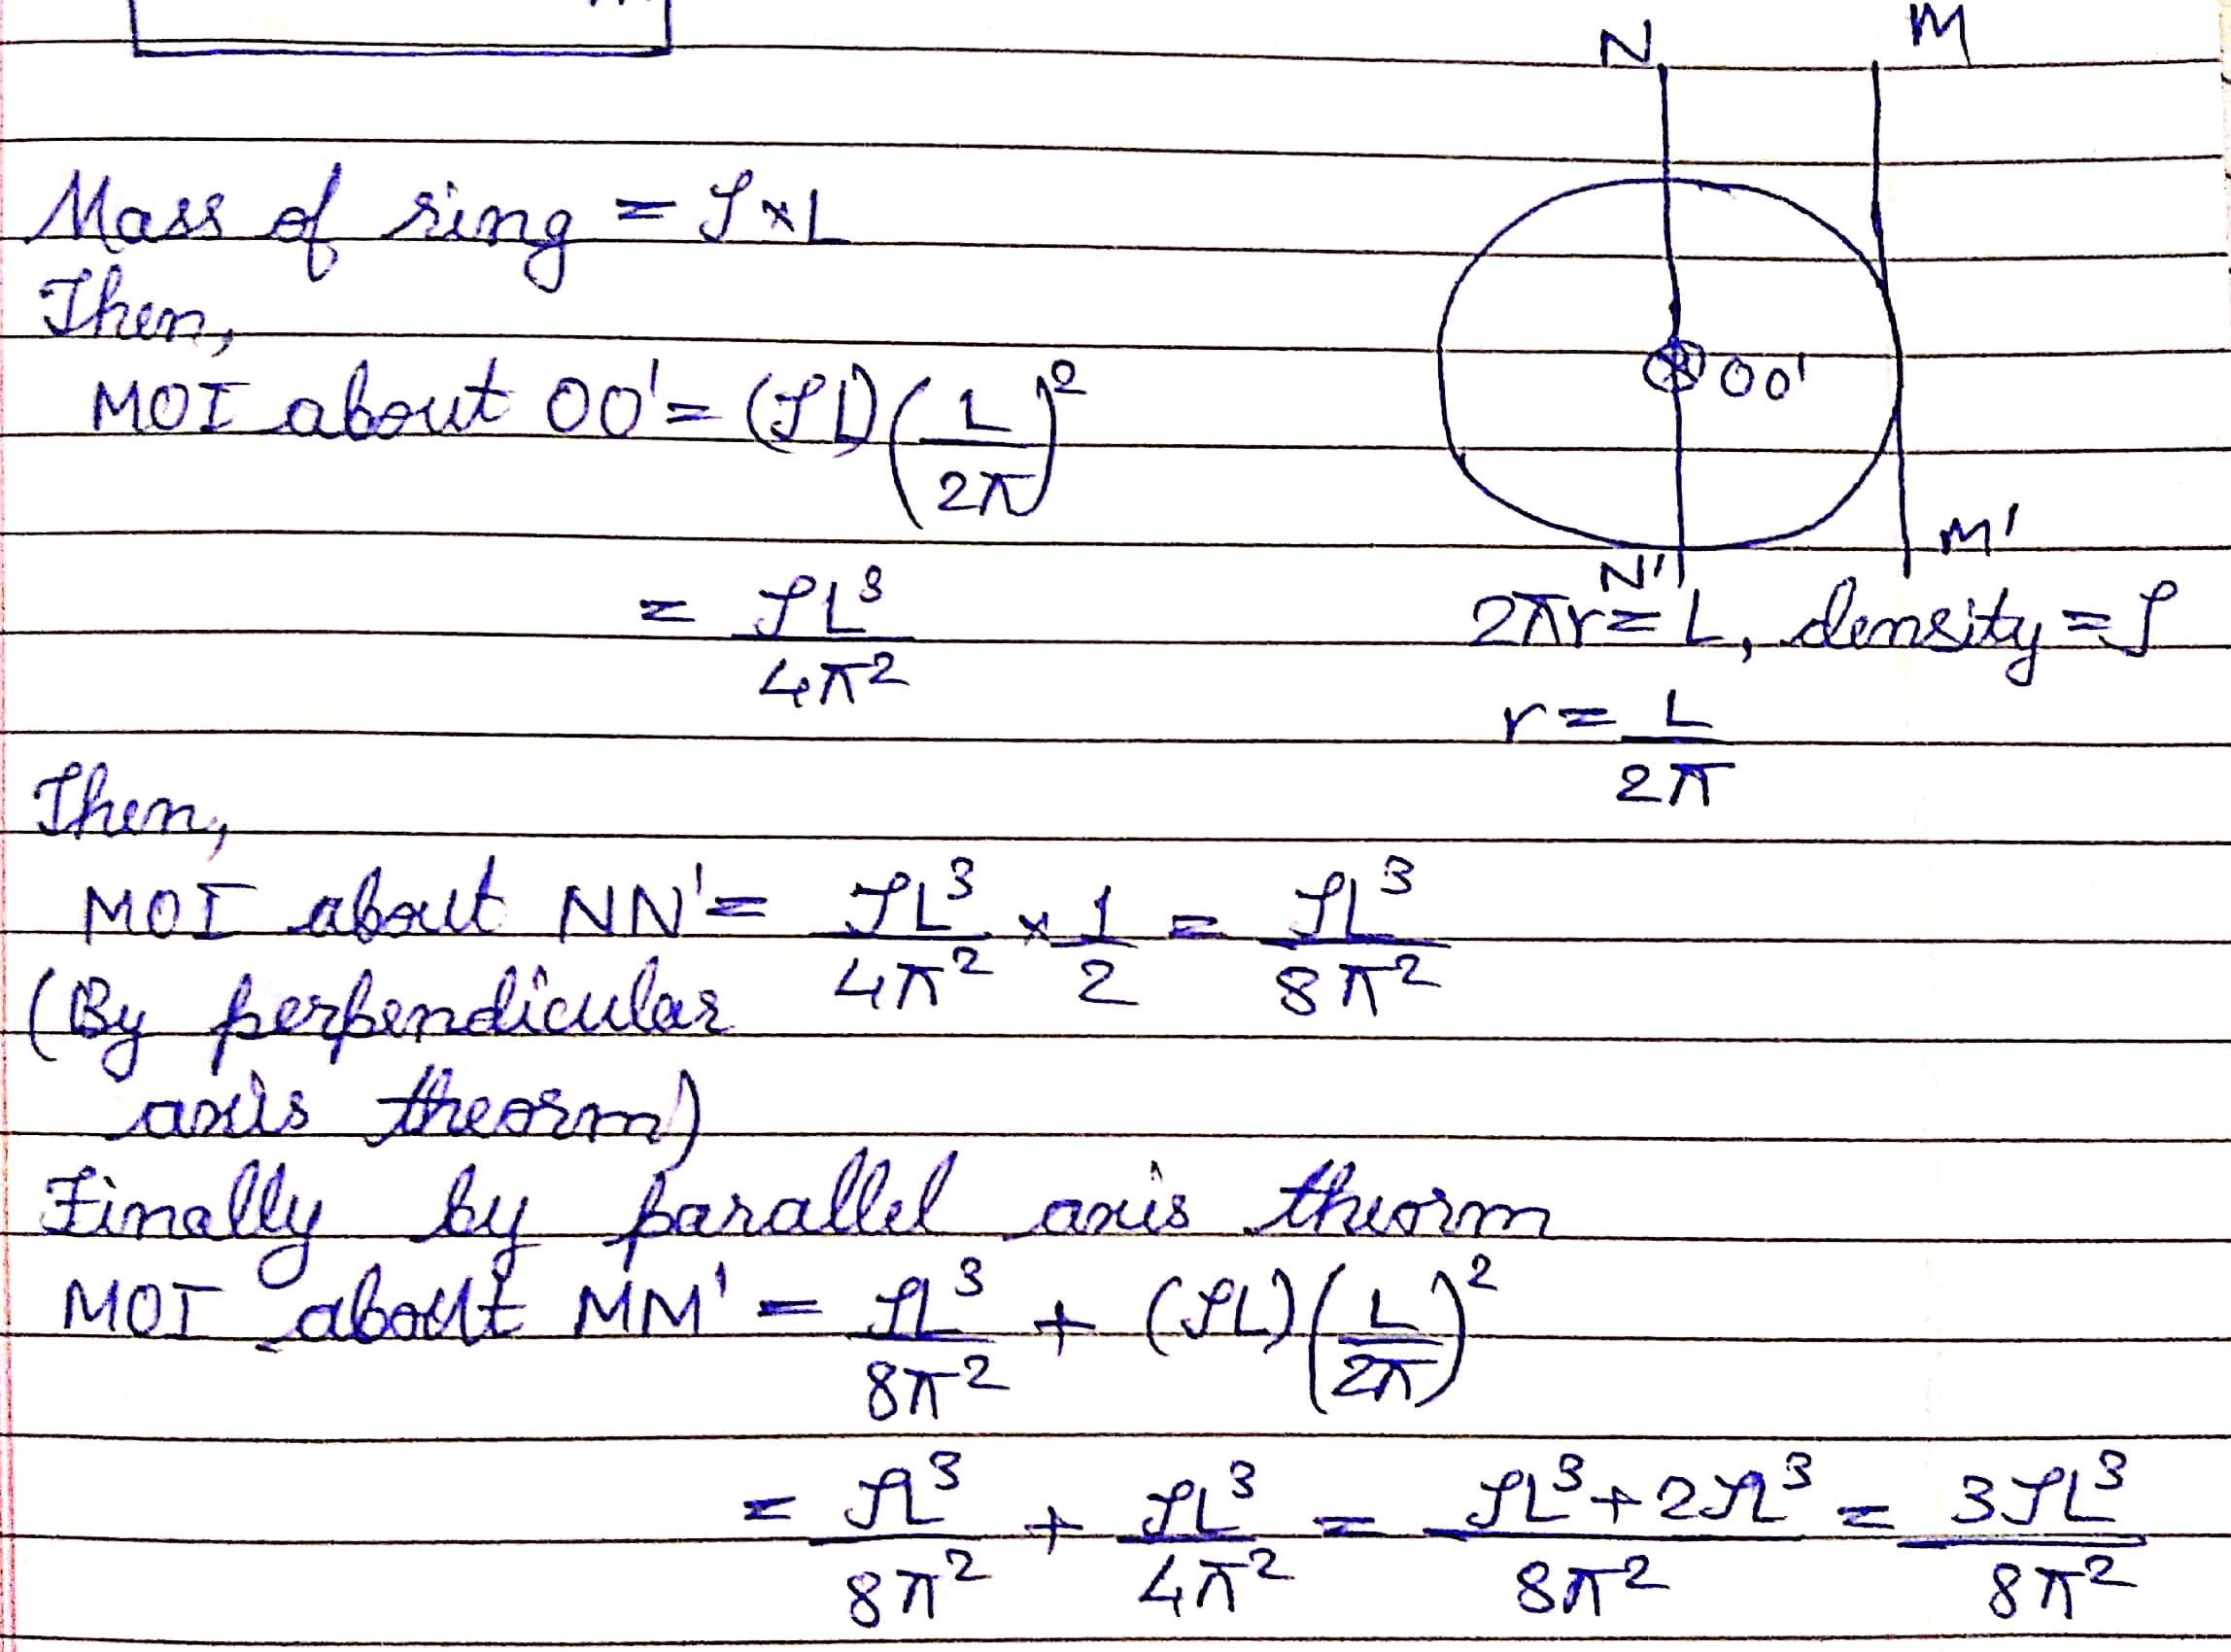 N
M
Mass of ring = ρ × L
Then,
MOI about OO' = (ρL)(L/2π)²
OO'
M'
N'
= ρL³/4π²
2πr = L, density = ρ
r = L/2π
Then,
MOI about NN' = ρL³/4π² × 1/2 = ρL³/8π²
(By perpendicular
axis theorm)
Finally by parallel axis theorm
MOI about MM' = ρL³/8π² + (ρL)(L/2π)²
= ρL³/8π² + ρL³/4π² = ρL³+2ρL³/8π² = 3ρL³/8π²